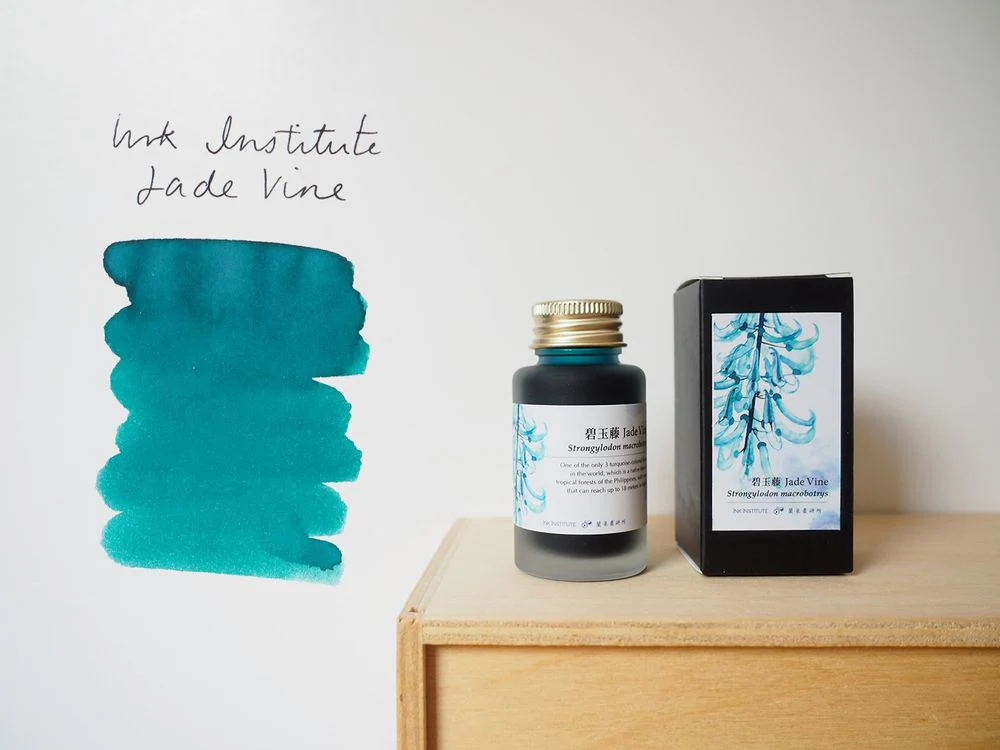 Ink Institute
Jade Vine
碧玉藤 Jade Vin
Strongylodon macrobotry
One of the only 3 turquoise-colored
in the world, which is a native
tropical forests of the Philippines, with
that can reach up to 18 meters
INK INSTITUTE
碧玉藤 Jade Vine
Strongylodon macrobotrys
INK INSTITUTE